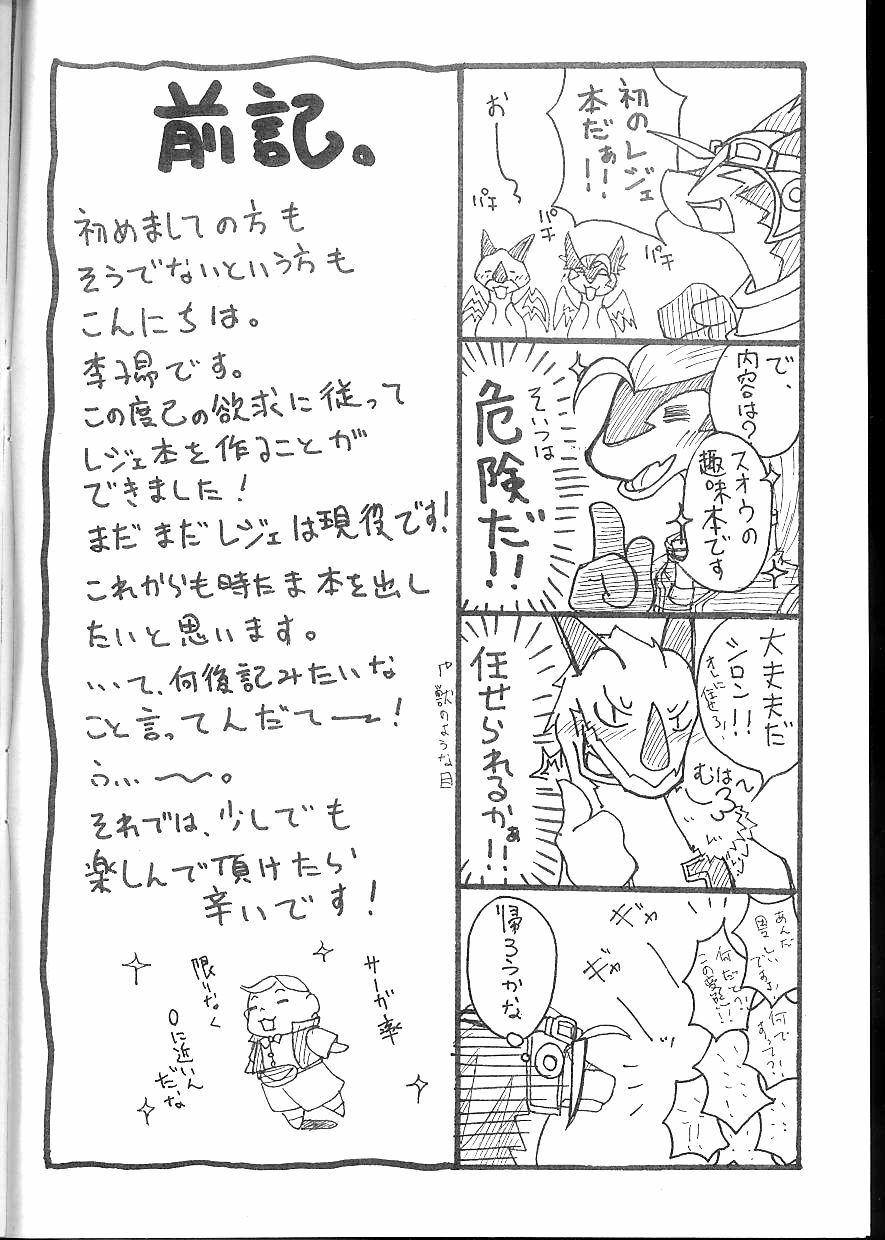 初のレジェ
本だぁ!!
おー
パチ
パチ
パチ
パチ
で、
内容は?
スオウの
趣味本です
そいつは
危険だ!!
大丈夫だ
シロン!!
オレに任せろ!
むはー
任せられるかぁ!!
獣のような目
あんだ
ですよ!
何だて?!
何で
すって?!
ギャ
ギャ
帰ろうかな
前記。
初めましての方も
そうでないという方も
こんにちは。
です。
この度己の欲求に従って
レジェ本を作ることが
できました!
まだまだレジェは現役です!
これからも時たま本を出し
たいと思います。
…って、何後記みたいな
こと言ってんだてー!
ふぃー〜。
それでは、少しでも
楽しんで頂けたら
幸いです!
サーガ率
限りなく
0に近いん
だな